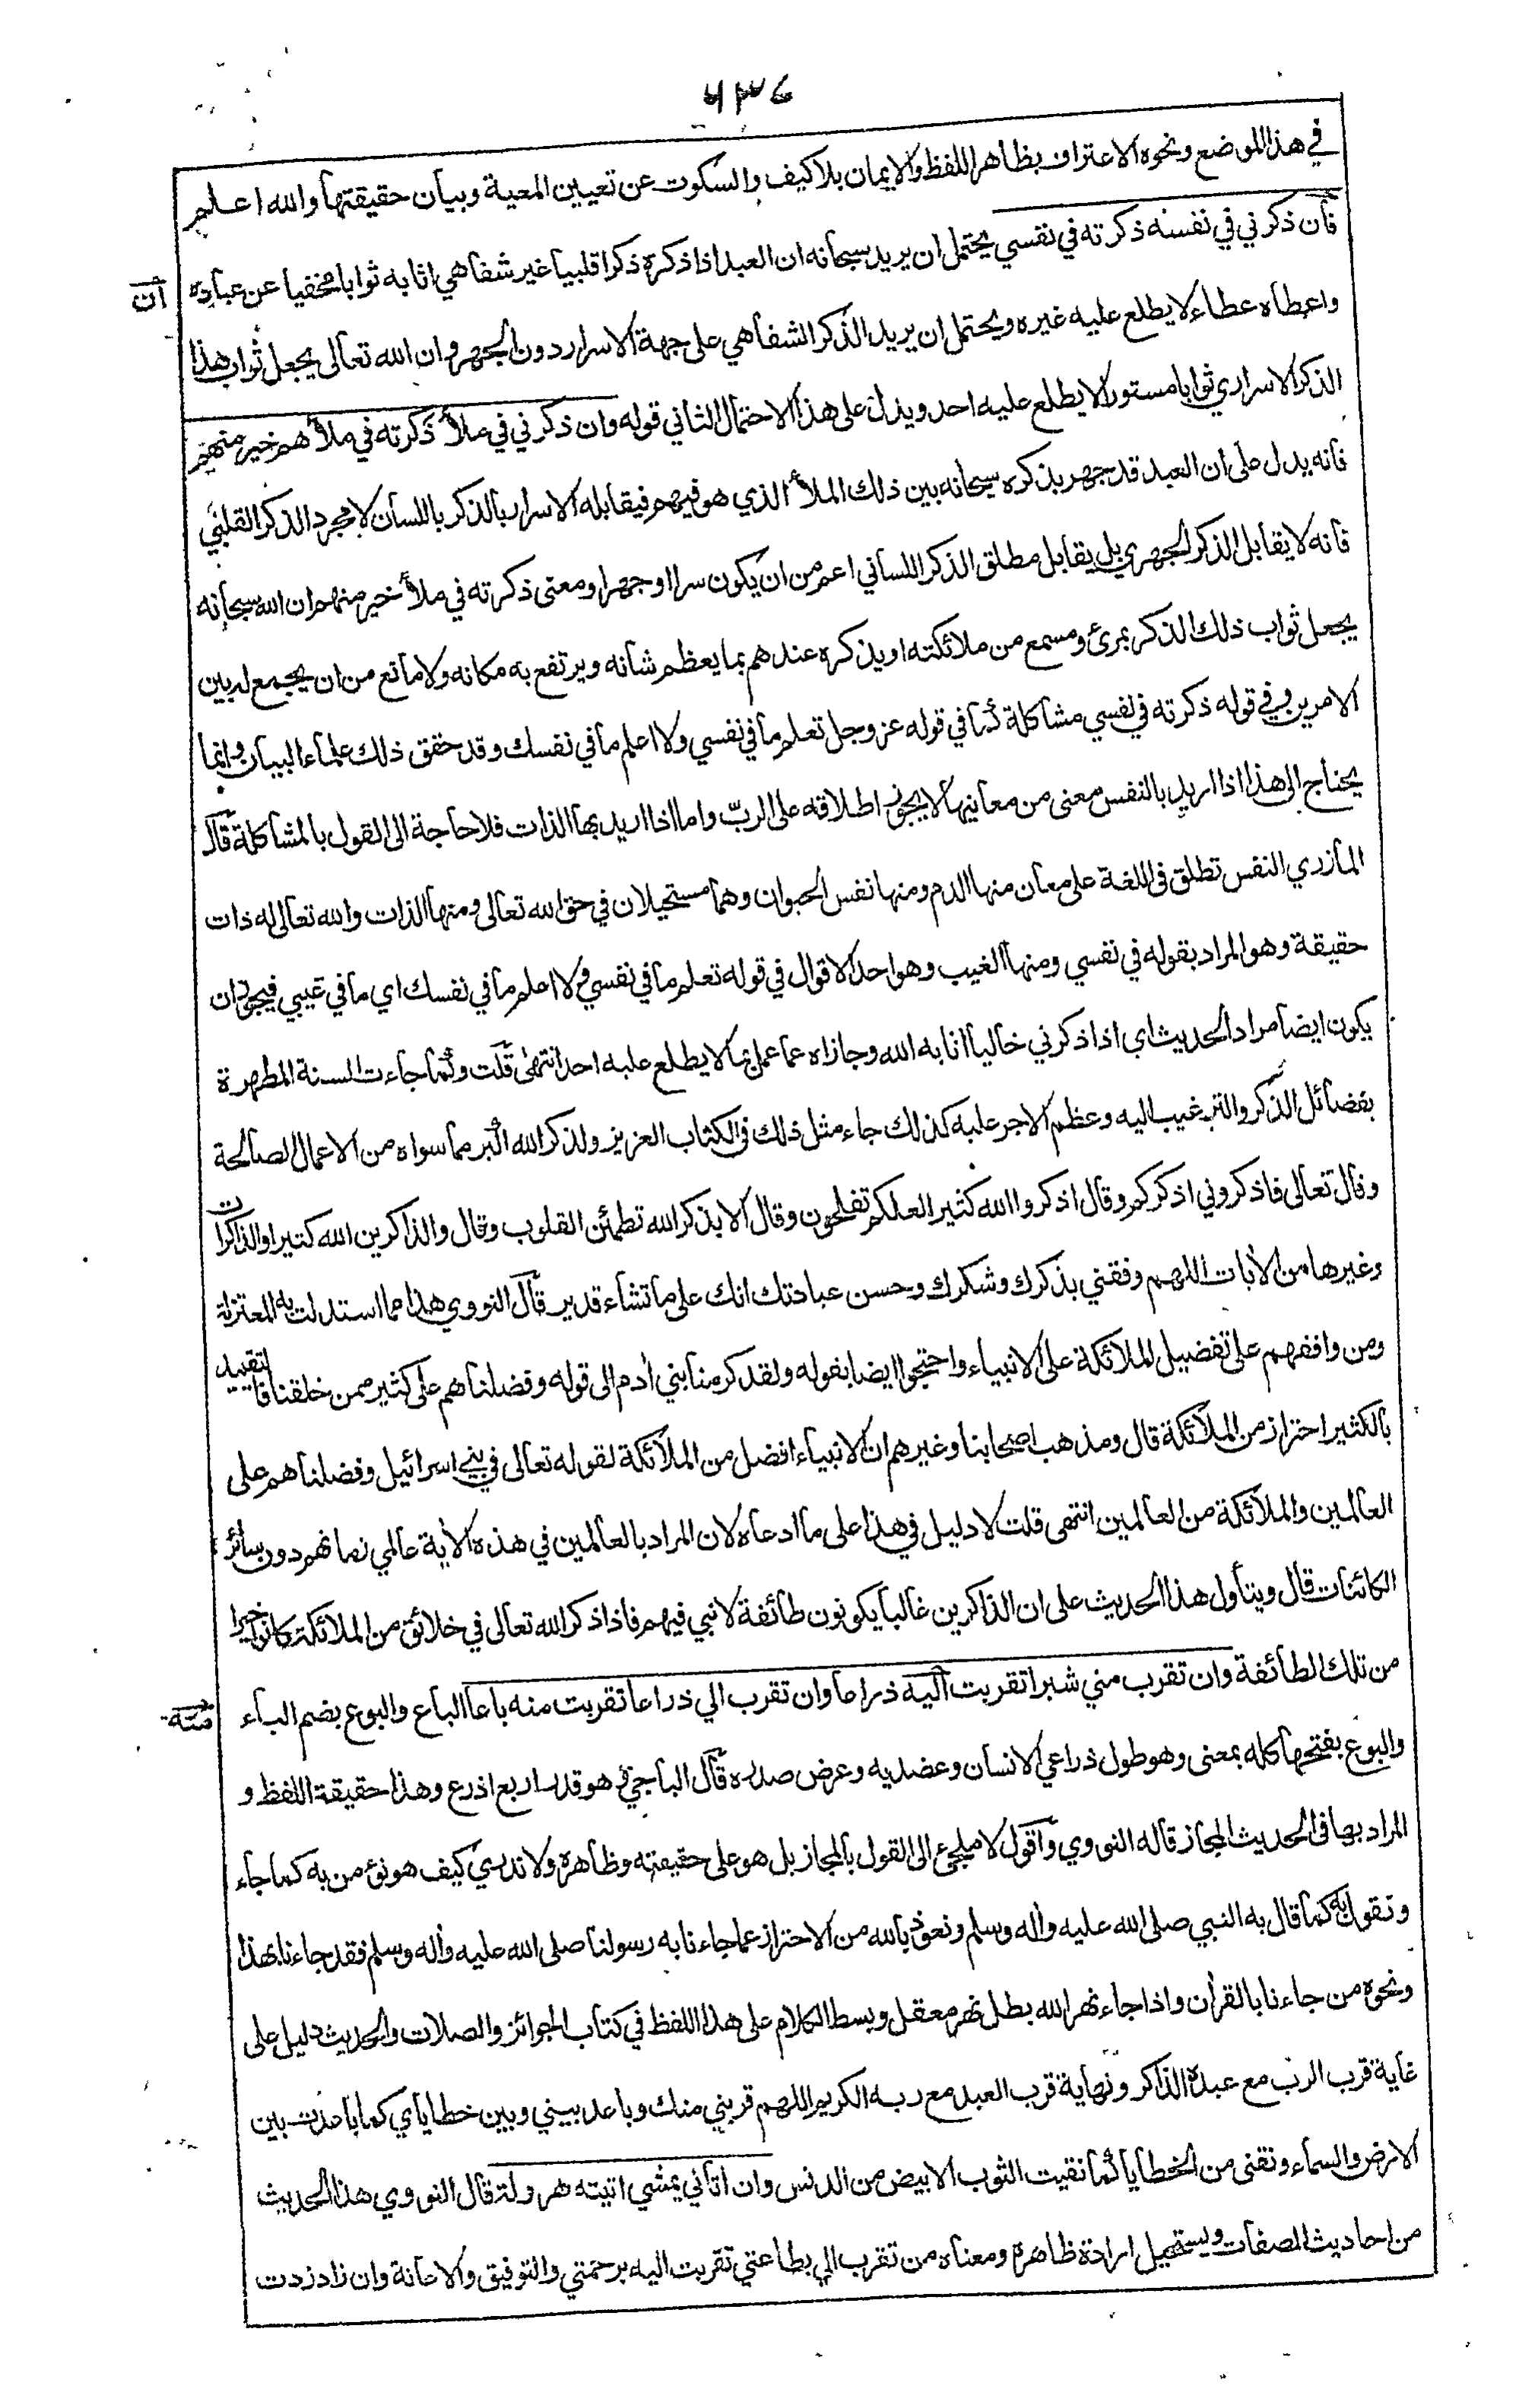 ٦٣٧
في هذا الموضع ونحوه الاعتراف بظاهر اللفظ والايمان بلا كيف والسكوت عن تعيين المعية وبيان حقيقتها والله اعلم
فان ذكرني في نفسه ذكرته في نفسي يحتمل ان يريد سبحانه ان العبد اذا ذكره ذكرا قلبيا غير شفاهي اثابه ثوابا مخفيا عن عباده
ان
واعطاه عطاء لا يطلع عليه غيره ويحتمل ان يريد الذكر الشفاهي على جهة الاسرار دون الجهر وان الله تعالى يجعل ثواب هذا
الذكر الاسراري ثوابا مستورا لا يطلع عليه احد ويدل على هذا الاحتمال الثاني قوله وان ذكرني في ملأ ذكرته في ملأ هم خير منهم
فانه يدل على ان العبد قد جهر بذكره سبحانه بين ذلك الملأ الذي هو فيهم فيقابله الاسرار بالذكر باللسان لا مجرد الذكر القلبي
فانه لا يقابل الذكر الجهري بل يقابل مطلق الذكر اللساني اعم من ان يكون سرا او جهرا ومعنى ذكرته في ملأ خير منهم ان الله سبحانه
يجعل ثواب ذلك الذكر بمرئ ومسمع من ملائكته او يذكره عندهم بما يعظم شأنه ويرتفع به مكانه ولا مانع من ان يجمع له بين
الامرين وفي قوله ذكرته في نفسي مشاكلة كما في قوله عز وجل تعلم ما في نفسي ولا اعلم ما في نفسك وقد حقق ذلك علماء البيان وانما
يحتاج الى هذا اذا اريد بالنفس معنى من معانيها لا يجوز اطلاقه على الرب واما اذا اريد بها الذات فلا حاجة الى القول بالمشاكلة قال
المازري النفس تطلق في اللغة على معان منها الدم ومنها نفس الحيوان وهما مستحيلان في حق الله تعالى ومنها الذات والله تعالى له ذات
حقيقة وهو المراد بقوله في نفسي ومنها الغيب وهو احد الاقوال في قوله تعلم ما في نفسي ولا اعلم ما في نفسك اي ما في غيبي فيجوز ان
يكون ايضا مراد الحديث اي اذا ذكرني خاليا اثابه الله وجازاه عما عمل بما لا يطلع عليه احد انتهى قلت وكما جاءت السنة المطهرة
بفضائل الذكر والترغيب اليه وعظم الاجر عليه كذلك جاء مثل ذلك في الكتاب العزيز ولذكر الله اكبر مما سواه من الاعمال الصالحة
وقال تعالى فاذكروني اذكركم وقال اذكروا الله كثيرا لعلكم تفلحون وقال الا بذكر الله تطمئن القلوب وقال والذاكرين الله كثيرا والذاكرات
وغيرها من الأيات اللهم وفقني بذكرك وشكرك وحسن عبادتك انك على ما تشاء قدير قال النووي هذا مما استدلت به المعتزلة
ومن وافقهم على تفضيل الملائكة على الانبياء واحتجوا ايضا بقوله ولقد كرمنا بني أدم الى قوله وفضلناهم على كثير ممن خلقنا فالتقييد
بالكثير احتراز من الملائكة قال ومذهب اصحابنا وغيرهم ان الانبياء افضل من الملائكة لقوله تعالى في بني اسرائيل وفضلناهم على
العالمين والملائكة من العالمين انتهى قلت لا دليل في هذا على ما ادعاه لان المراد بالعالمين في هذه الأية عالمي زمانهم دون سائر
الكائنات قال ويتأول هذا الحديث على ان الذاكرين غالبا يكونون طائفة لا نبي فيهم فاذا ذكر الله تعالى في خلائق من الملائكة كانوا خيرا
من تلك الطائفة وان تقرب مني شبرا تقربت اليه ذراعا وان تقرب الي ذراعا تقربت منه باعا الباع والبوع بضم الباء
منه
والبوع بفتحها كله بمعنى وهو طول ذراعي الانسان وعضديه وعرض صدره قال الباجي هو قدر اربع اذرع وهذا حقيقة اللفظ و
المراد بها في الحديث المجاز قاله النووي واقول لا ملجئ الى القول بالمجاز بل هو على حقيقته وظاهره ولا ندري كيف هو نؤمن به كما جاء
ونقول به كما قال به النبي صلى الله عليه وأله وسلم ونعوذ بالله من الاحتراز عما جاءنا به رسولنا صلى الله عليه وأله وسلم فقد جاءنا بهذا
ونحوه من جاءنا بالقرأن واذا جاء نهر الله بطل نهر معقل وبسط الكلام على هذا اللفظ في كتاب الجوائز والصلات والحديث دليل على
غاية قرب الرب مع عبده الذاكر ونهاية قرب العبد مع ربه الكريم اللهم قربني منك وباعد بيني وبين خطاياي كما باعدت بين
الارض والسماء ونقني من الخطايا كما نقيت الثوب الابيض من الدنس وان اتاني يمشي اتيته هرولة قال النووي هذا الحديث
من احاديث الصفات ويستحيل ارادة ظاهره ومعناه من تقرب الي بطاعتي تقربت اليه برحمتي والتوفيق والاعانة وان زاد زدت